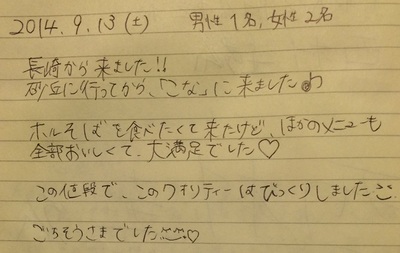 2014.9.13(土) 男性1名,女性2名
長崎から来ました!!
砂丘に行ってから、「こな」に来ました♪
ホルそばを食べたくて来たけど、ほかのメニューも
全部おいしくて、大満足でした♡
この値段で、このクオリティーはびっくりしました
ごちそうさまでした♡